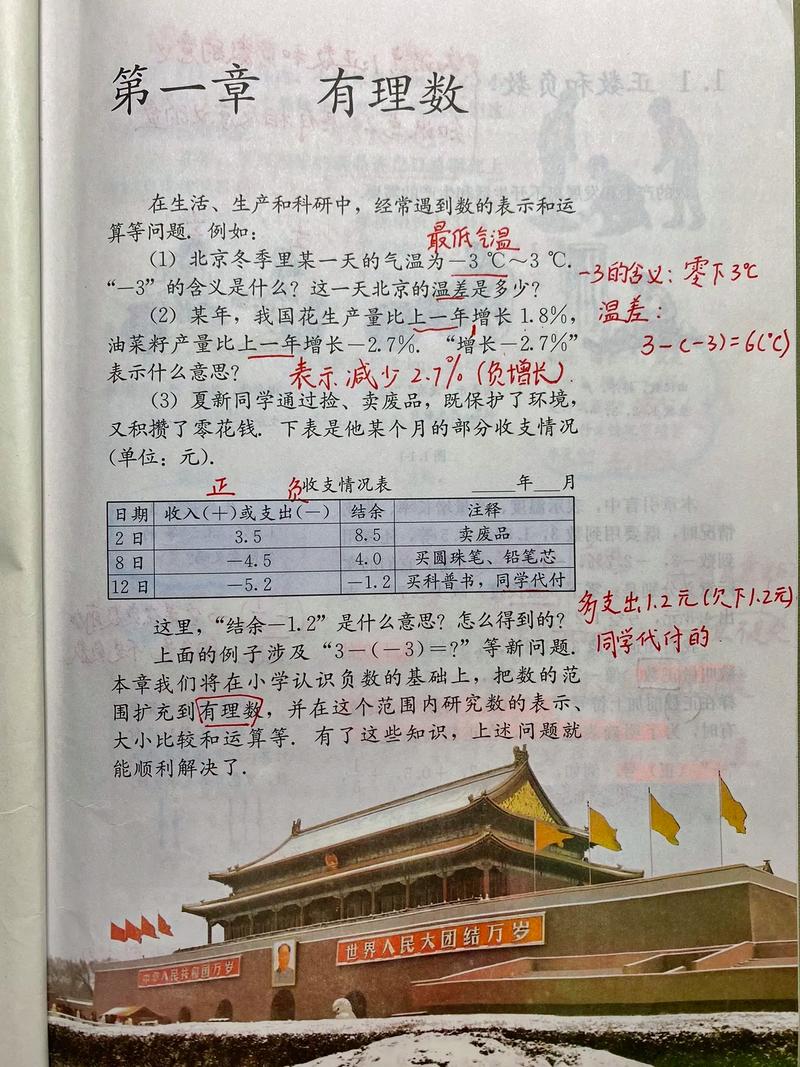 第一章 有理数
在生活、生产和科研中，经常遇到数的表示和运
算等问题. 例如：
最低气温
(1) 北京冬季里某一天的气温为−3 ℃～3 ℃.
“−3”的含义是什么？这一天北京的温差是多少？
−3的含义：零下3℃
温差：
3−(−3)=6(℃)
(2) 某年，我国花生产量比上一年增长1.8%，
油菜籽产量比上一年增长−2.7%. “增长−2.7%”
表示什么意思？
表示减少2.7% (负增长)
(3) 夏新同学通过捡、卖废品，既保护了环境，
又积攒了零花钱. 下表是他某个月的部分收支情况
(单位：元).
正 负
收支情况表 年 月
日期 收入(+)或支出(−) 结余 注释
2日 3.5 8.5 卖废品
8日 −4.5 4.0 买圆珠笔、铅笔芯
12日 −5.2 −1.2 买科普书，同学代付
多支出1.2元(欠下1.2元)
同学代付的
这里，“结余−1.2”是什么意思？怎么得到的？
上面的例子涉及“3−(−3)=?”等新问题.
本章我们将在小学认识负数的基础上，把数的范
围扩充到有理数，并在这个范围内研究数的表示、
大小比较和运算等. 有了这些知识，上述问题就
能顺利解决了.
中华人民共和国万岁
世界人民大团结万岁